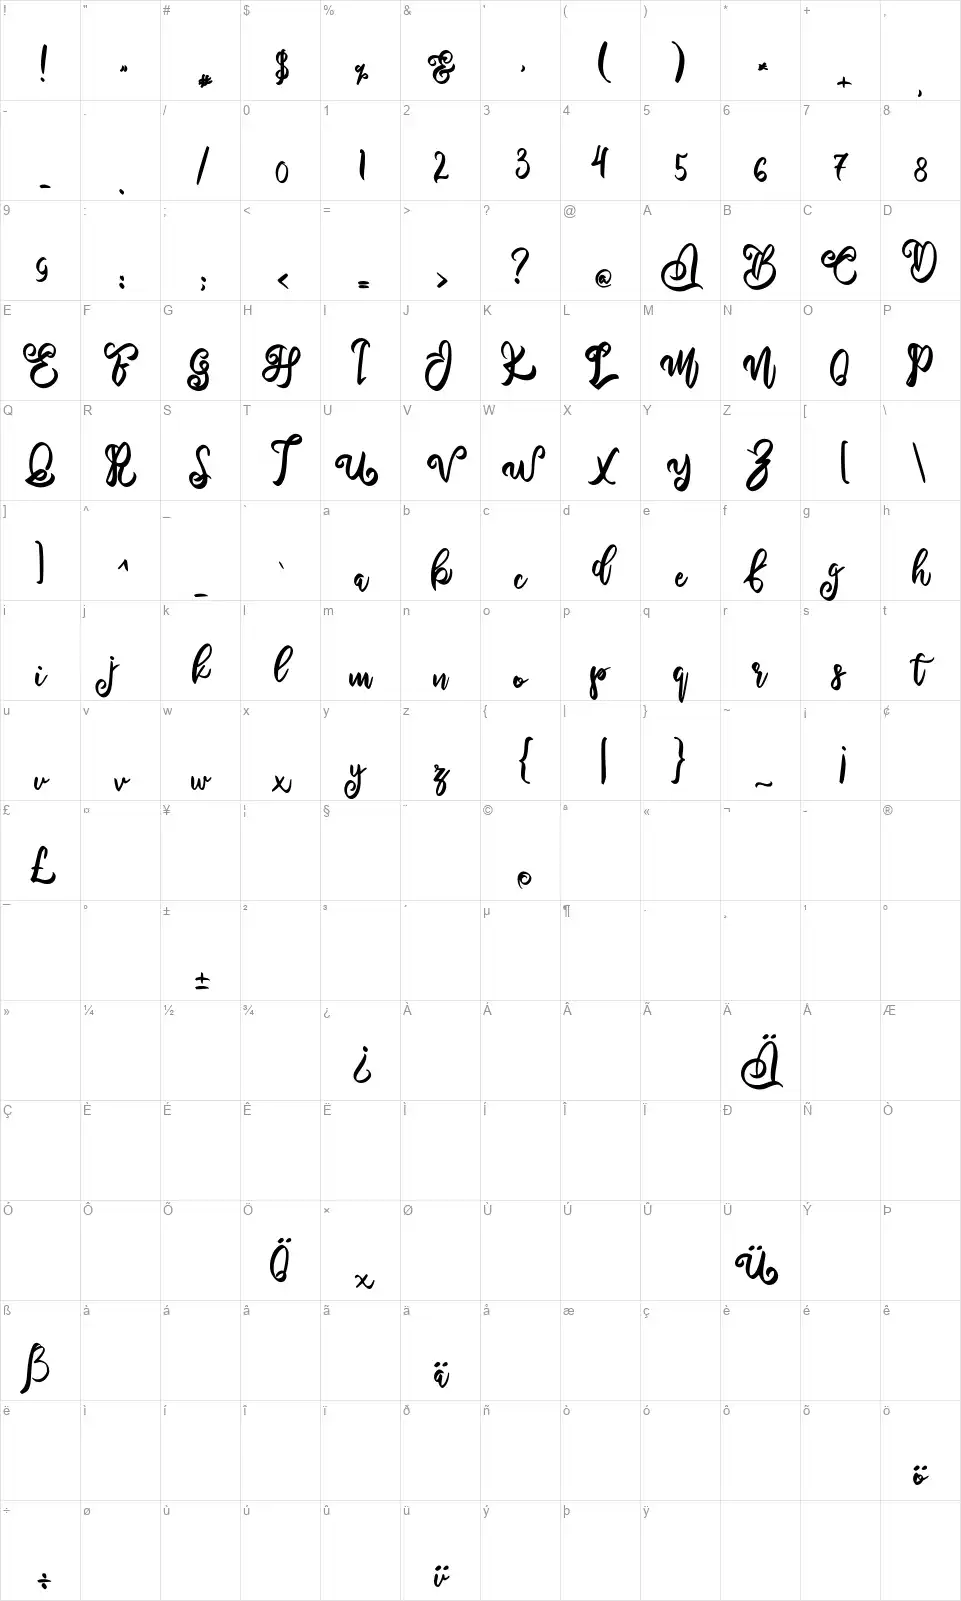 ! " # $ % & ' ( ) * + ,
! " # $ % & ' ( ) * + ,
- . / 0 1 2 3 4 5 6 7 8
- . / 0 1 2 3 4 5 6 7 8
9 : ; < = > ? @ A B C D
9 : ; < = > ? @ A B C D
E F G H I J K L M N O P
E F G H I J K L M N O P
Q R S T U V W X Y Z [ \
Q R S T U V W X Y Z [ \
] ^ _ ` a b c d e f g h
] ^ _ ` a b c d e f g h
i j k l m n o p q r s t
i j k l m n o p q r s t
u v w x y z { | } ~ ¡ ¢
u v w x y z { | } ~ ¡
£ ¤ ¥ ¦ § ¨ © ª « ¬ - ®
£ ©
¯ ° ± ² ³ ´ µ ¶ · ¸ ¹ º
±
» ¼ ½ ¾ ¿ À Á Â Ã Ä Å Æ
¿ Ä
Ç È É Ê Ë Ì Í Î Ï Ð Ñ Ò
Ó Ô Õ Ö × Ø Ù Ú Û Ü Ý Þ
Ö × Ü
ß à á â ã ä å æ ç è é ê
ß ä
ë ì í î ï ð ñ ò ó ô õ ö
ö
÷ ø ù ú û ü ý þ ÿ
÷ ü